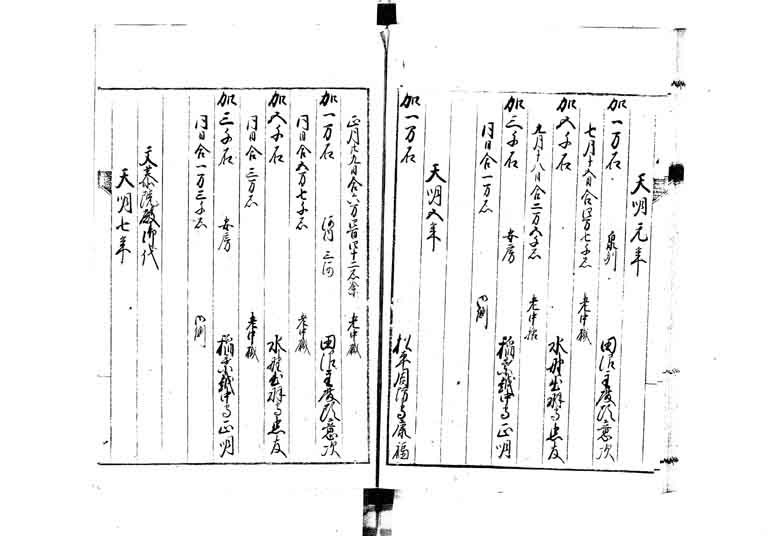 天明元年
加一万石 泉州 田沼主殿頭意次
七月十五日合四万七千石 老中職
加五千石 水野出羽守忠友
九月十八日合二万五千石 老中格
加三千石 安房 稲葉越中守正明
同日合一万石 御側
天明五年
加一万石 松平周防守康福
正月廿九日合六万四百四十二石余 老中職
加一万石 河内 三河 田沼主殿頭意次
同日合五万七千石 老中職
加五千石 水野出羽守忠友
同日合三万石 老中職
加三千石 安房 稲葉越中守正明
同日合一万三千石 御側
文恭院殿御代
天明七年